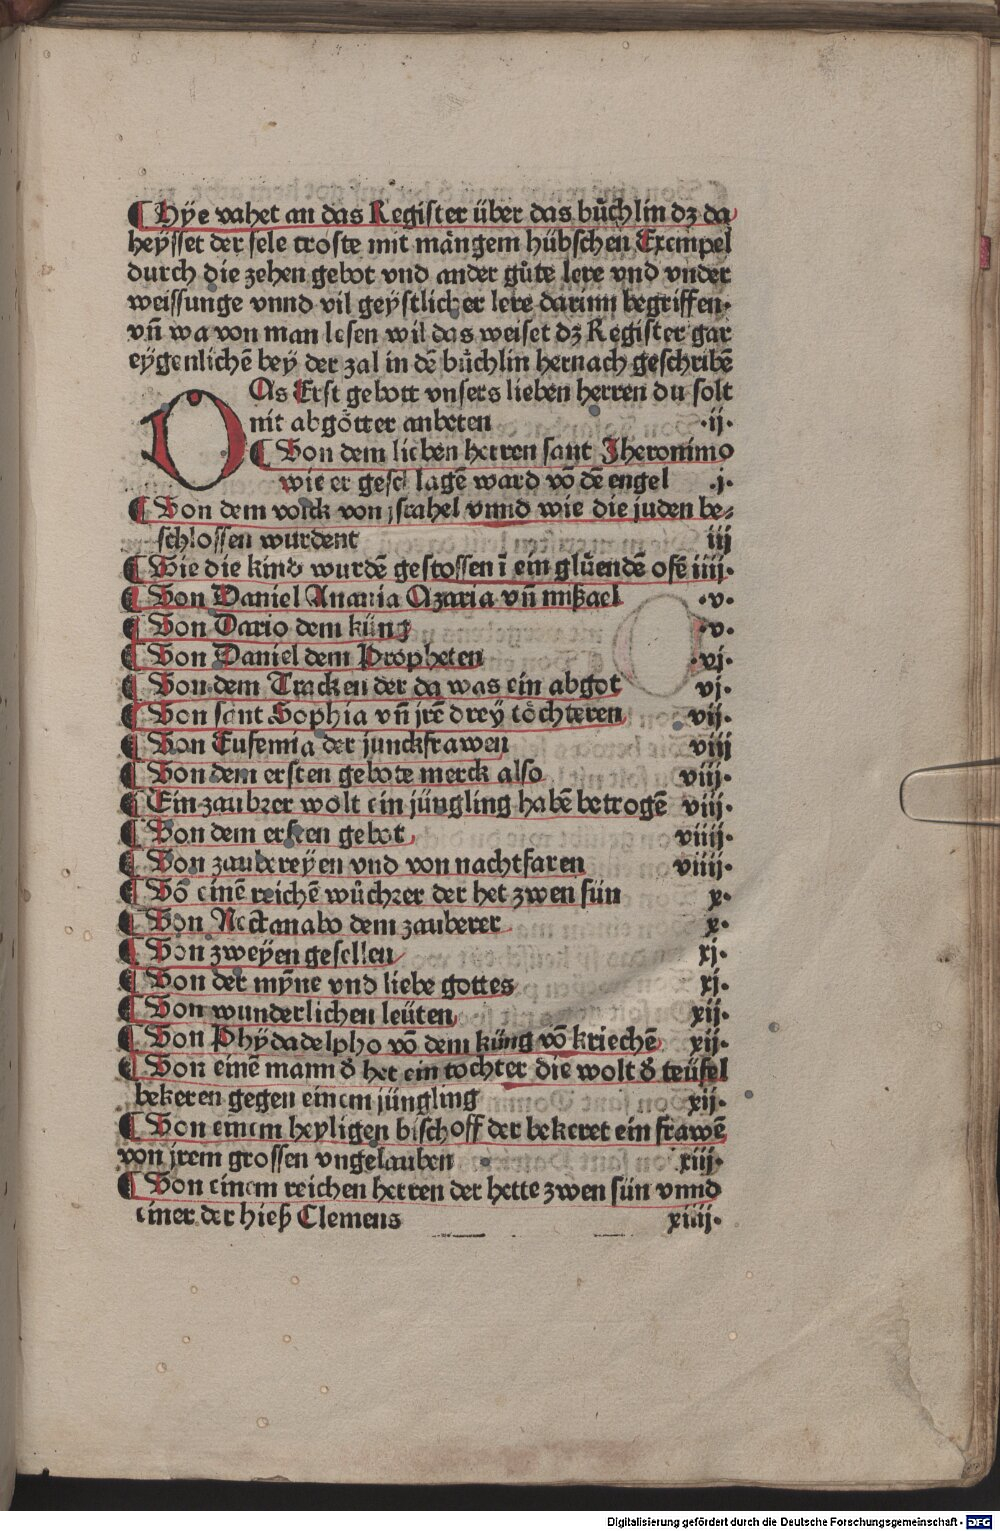 ¶ Hÿe vahet an das Register über das bůchlin dz da
heÿsset der sele troste mit mängem hübschen Exempel
durch die zehen gebot vnd ander gůte lere vnd vnder
weissunge vnnd vil geÿstlicher lere darinn begriffen·
vñ wa von man lesen wil das weiset dz Register gar
eÿgenlichē beÿ der zal in dē bůchlin hernach geschribē
DAs Erst gebott vnsers lieben herren du solt
nit abgötter anbeten ·ii·
¶ Von dem lieben herren sant Jheronimo
wie er geschlagē ward vō dē engel ·j·
¶ Von dem volck von jsrahel vnnd wie die juden be⸗
schlossen wurdent iij
¶ Wie die kind wurdē gestossen ī ein glůendē ofē iiij·
¶ Von Daniel Anania Azaria vñ misßael ·v·
¶ Von Dario dem küng ·v·
¶ Von Daniel dem Propheten ·vj·
¶ Von dem Tracken der da was ein abgot vj·
¶ Von sant Sophia vñ jrē dreÿ töchteren vij·
¶ Von Eufemia der junckfrawen viij
¶ Von dem ersten gebote merck also viij·
¶ Ein zaubrer wolt ein jüngling habē betrogē viij·
¶ Von dem ersten gebot viiij·
¶ Von zaubereÿen vnd von nachtfaren viiij·
¶ Vō einē reichē wůchrer der het zwen sün x·
¶ Von Nectanabo dem zauberer x·
¶ Von zweÿen gesellen xj·
¶ Von der mÿne vnd liebe gottes xj·
¶ Von wunderlichen leüten xij·
¶ Von Phÿdadelpho vō dem küng vō kriechē xij·
¶ Von einē mann d̕ het ein tochter die wolt d̕ teüfel
bekeren gegen einem jüngling xij·
¶ Von einem heyligen bischoff der bekeret ein frawē
von jrem grossen vngelauben xiij·
¶ Von einem reichen herren der hette zwen sün vnnd
einer der hieß Clemens xiiij·
Digitalisierung gefördert durch die Deutsche Forschungsgemeinschaft - DFG